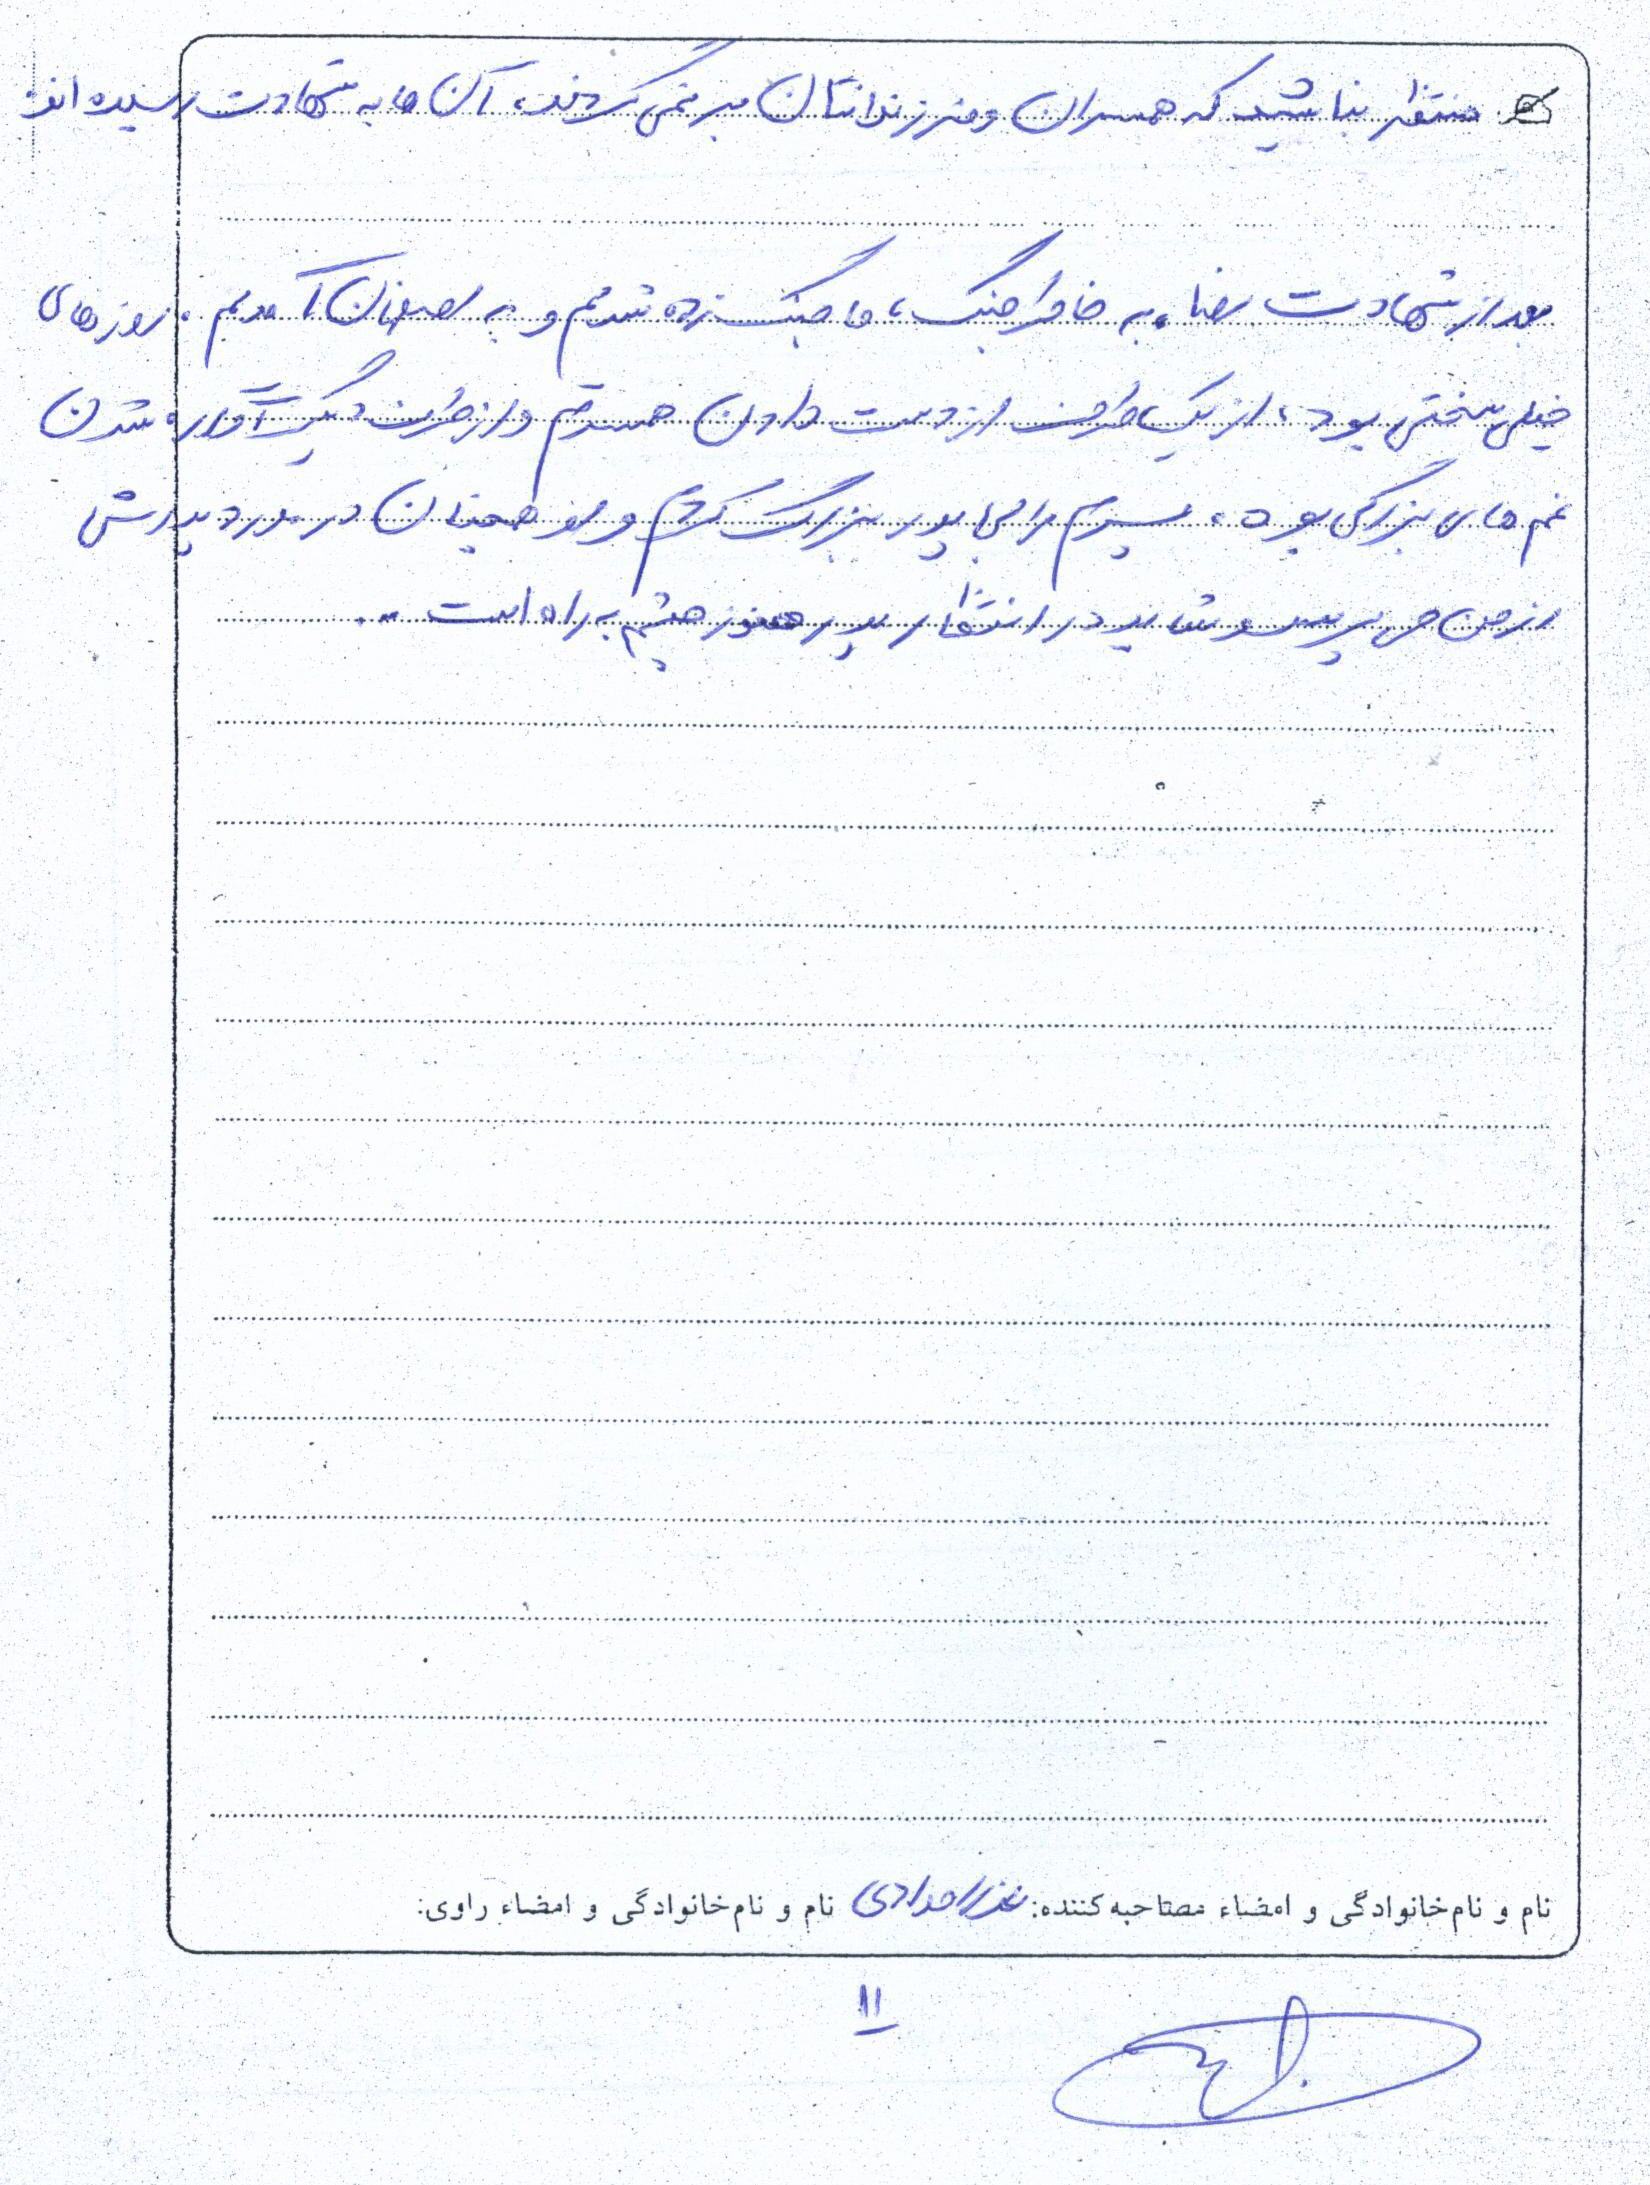 منتظر نباشید که همسران و فرزندانتان بر نمی گردند، آن ها به شهادت رسیده اند.
بعد از شهادت رضا، به خاطر جنگ، ما جنگ زده شدیم و به اصفهان آمدیم. روزهای
خیلی سختی بود، از یک طرف از دست دادن همسرم و از طرف دیگر آواره شدن
غم های بزرگی بود. پسرم را بی پدر بزرگ کردم و او همچنان در مورد پدرش
از من می پرسد و شاید در انتظار پدر هنوز چشم به راه است ...
نام و نام‌خانوادگی و امضاء مصاحبه‌کننده: نام و نام‌خانوادگی و امضاء راوی:
۱۱